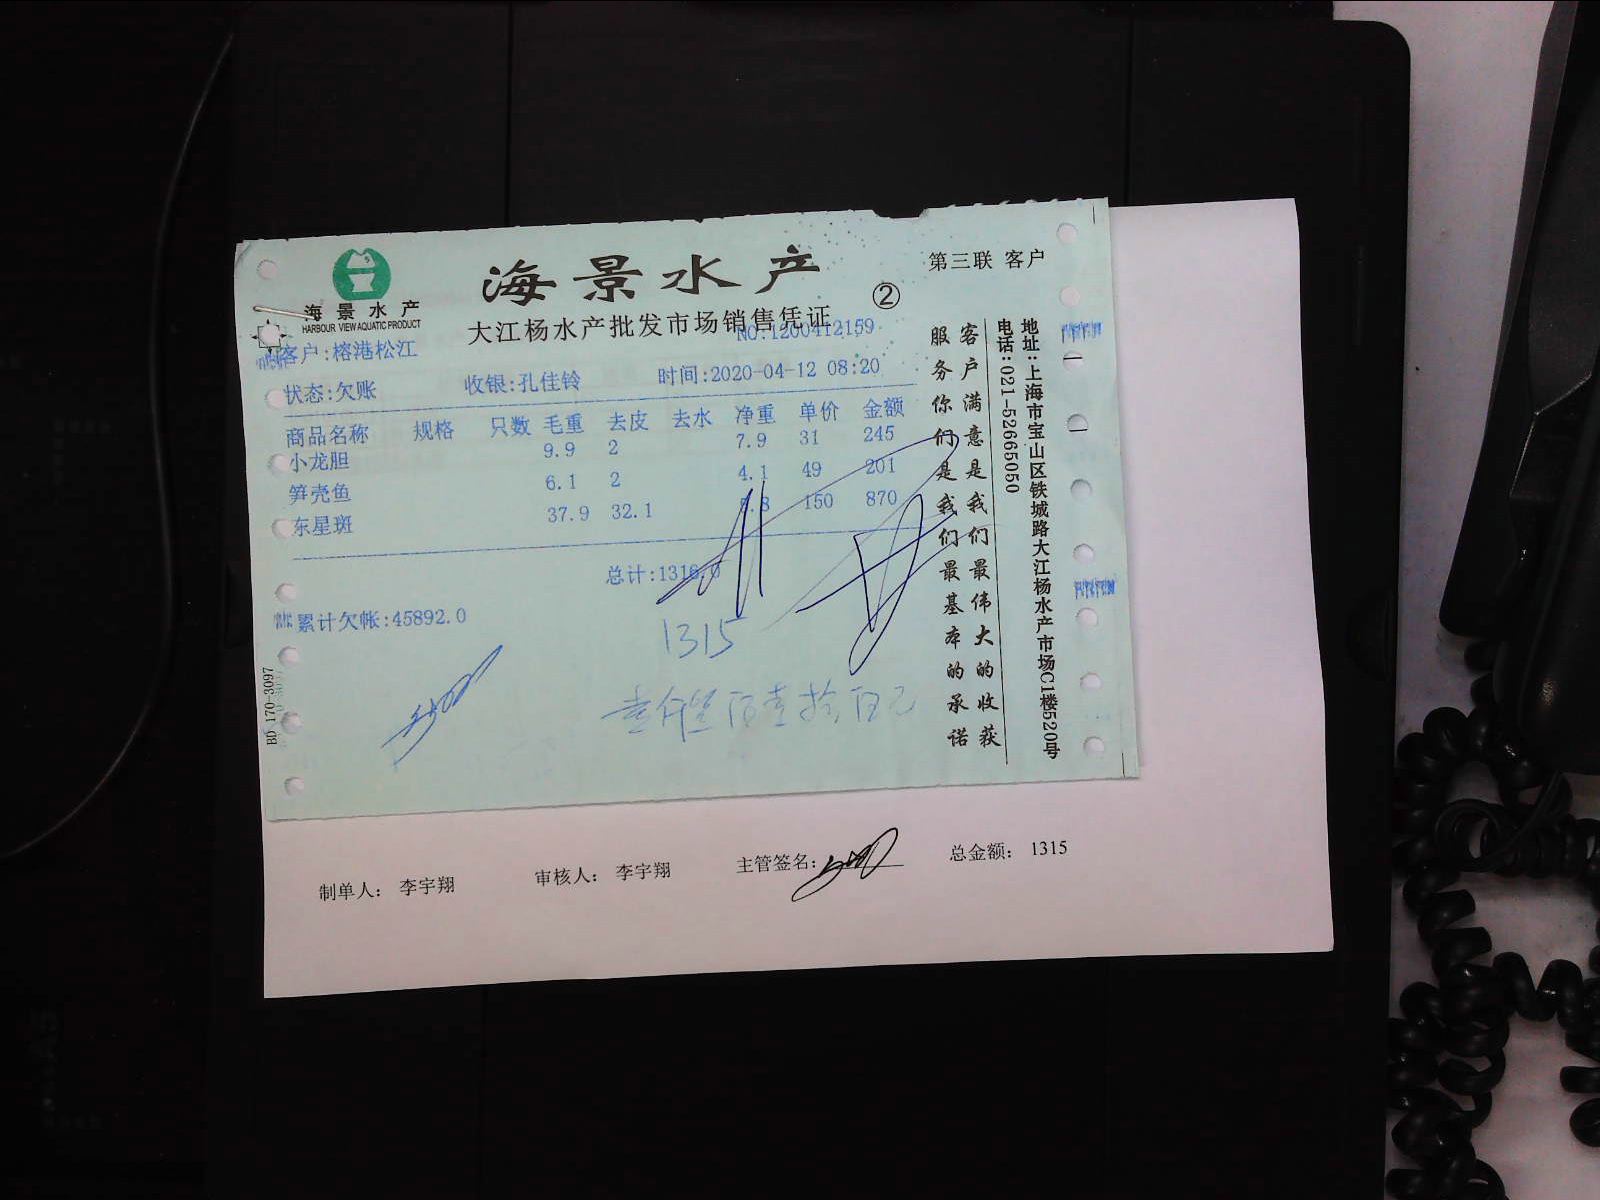 海景水产
第三联 客户
海景水产
HARBOUR VIEW AQUATIC PRODUCT
大江杨水产批发市场销售凭证
②
NO:1200412159
客户:榕港松江
状态:欠账 收银:孔佳铃 时间:2020-04-12 08:20
商品名称 规格 只数 毛重 去皮 去水 净重 单价 金额
小龙胆 9.9 2 7.9 31 245
笋壳鱼 6.1 2 4.1 49 201
东星斑 37.9 32.1 5.8 150 870
总计:1316.0
累计欠帐:45892.0
1315
客户满意是我们最伟大的收获
服务你们是我们最基本的承诺
地址:上海市宝山区铁城路大江杨水产市场C1楼520号
电话:021-52665050
BD 170-3097
制单人： 李宇翔 审核人： 李宇翔 主管签名: 总金额： 1315